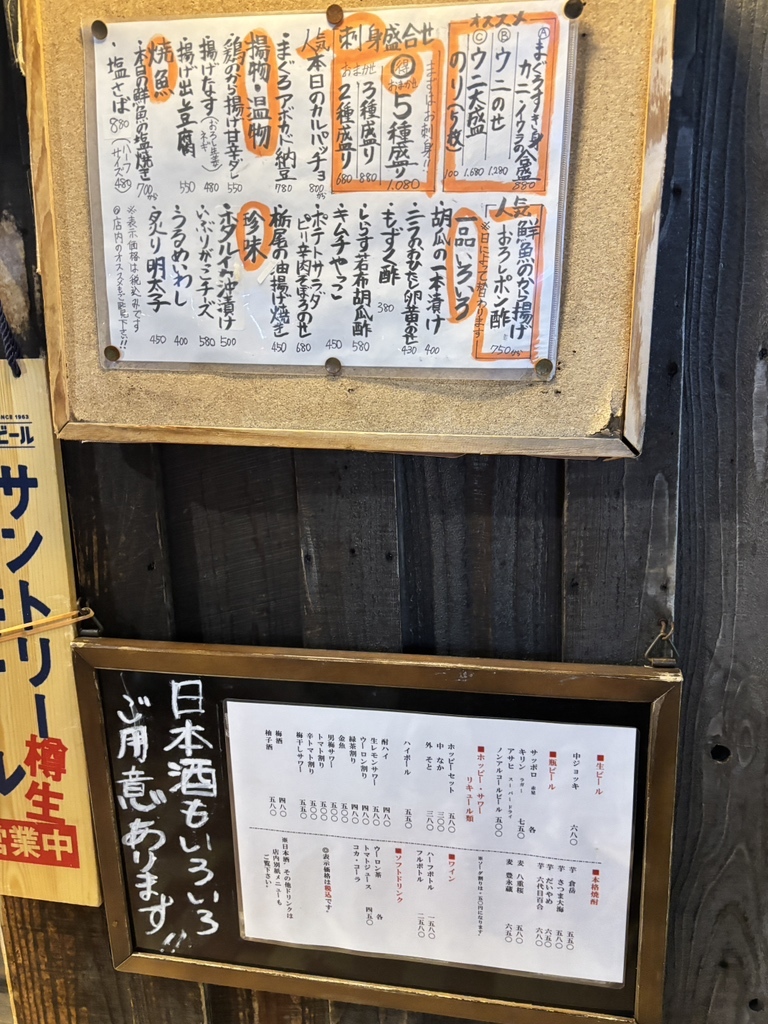 オススメ
Ⓐまぐろすき身
カニ・イクラの合盛 880
Ⓑウニのせ 1.290
Ⓒウニ大盛 1.680
のり(5枚) 100
刺身盛合せ
まずはお刺身!!
おまかせ
5種盛り 1.080
おまかせ
3種盛り 880
2種盛り 680
人気
本日のカルパッチョ 800から
まぐろアボカド納豆 780
揚物・温物
鶏のから揚げ甘辛ダレ 550
揚げなす 480
揚げ出し豆腐 550
焼魚
本日鮮魚の塩焼き 700から
塩さば 880(ハーフサイズ 480)
人気
鮮魚のから揚げ
おろしポン酢 750から
※日によって替わります
一品いろいろ
胡瓜の一本漬け 400
ニラのおひたし卵黄のせ 430
もずく酢 380
しらす若布胡瓜酢 580
キムチやっこ 450
ポテトサラダ
ピリ辛肉そぼろのせ 680
栃尾の油揚げ焼き 450
珍味
ホタルイカ沖漬け 500
いぶりがっこチーズ 580
うるめいわし 400
炙り明太子 450
※表示価格は税込みです
店内のオススメもご覧下さい!!
SINCE 1963
ビール
サントリー
樽生
営業中
日本酒もいろいろ
ご用意あります!!
■生ビール
中ジョッキ 六八〇
■瓶ビール
サッポロ 赤星
キリン ラガー 各
アサヒ スーパードライ 七五〇
ノンアルコールビール 五〇〇
■ホッピー・サワー
リキュール類
ホッピーセット 五八〇
中 なか 三〇〇
外 そと 三八〇
ハイボール 五五〇
酎ハイ 四八〇
生レモンサワー 五八〇
ウーロン割り 四八〇
緑茶割り 四八〇
金魚 五〇〇
男梅サワー 五〇〇
トマト割り 五〇〇
辛トマト割り 五五〇
梅干しサワー 五五〇
梅酒 四八〇
柚子酒 五八〇
■本格焼酎
芋 倉岳 五五〇
芋 さつま大海 五八〇
芋 だいやめ 六五〇
芋 六代目百合 六八〇
麦 八重桜 五八〇
麦 豊永蔵 六五〇
■ワイン
ハーフボトル 一五八〇
フルボトル 二五八〇
■ソフトドリンク
ウーロン茶 各
トマトジュース 四五〇
コカ・コーラ
◎表示価格は税込です
※日本酒、その他ドリンクは
店内別紙メニューも
ご覧下さい。